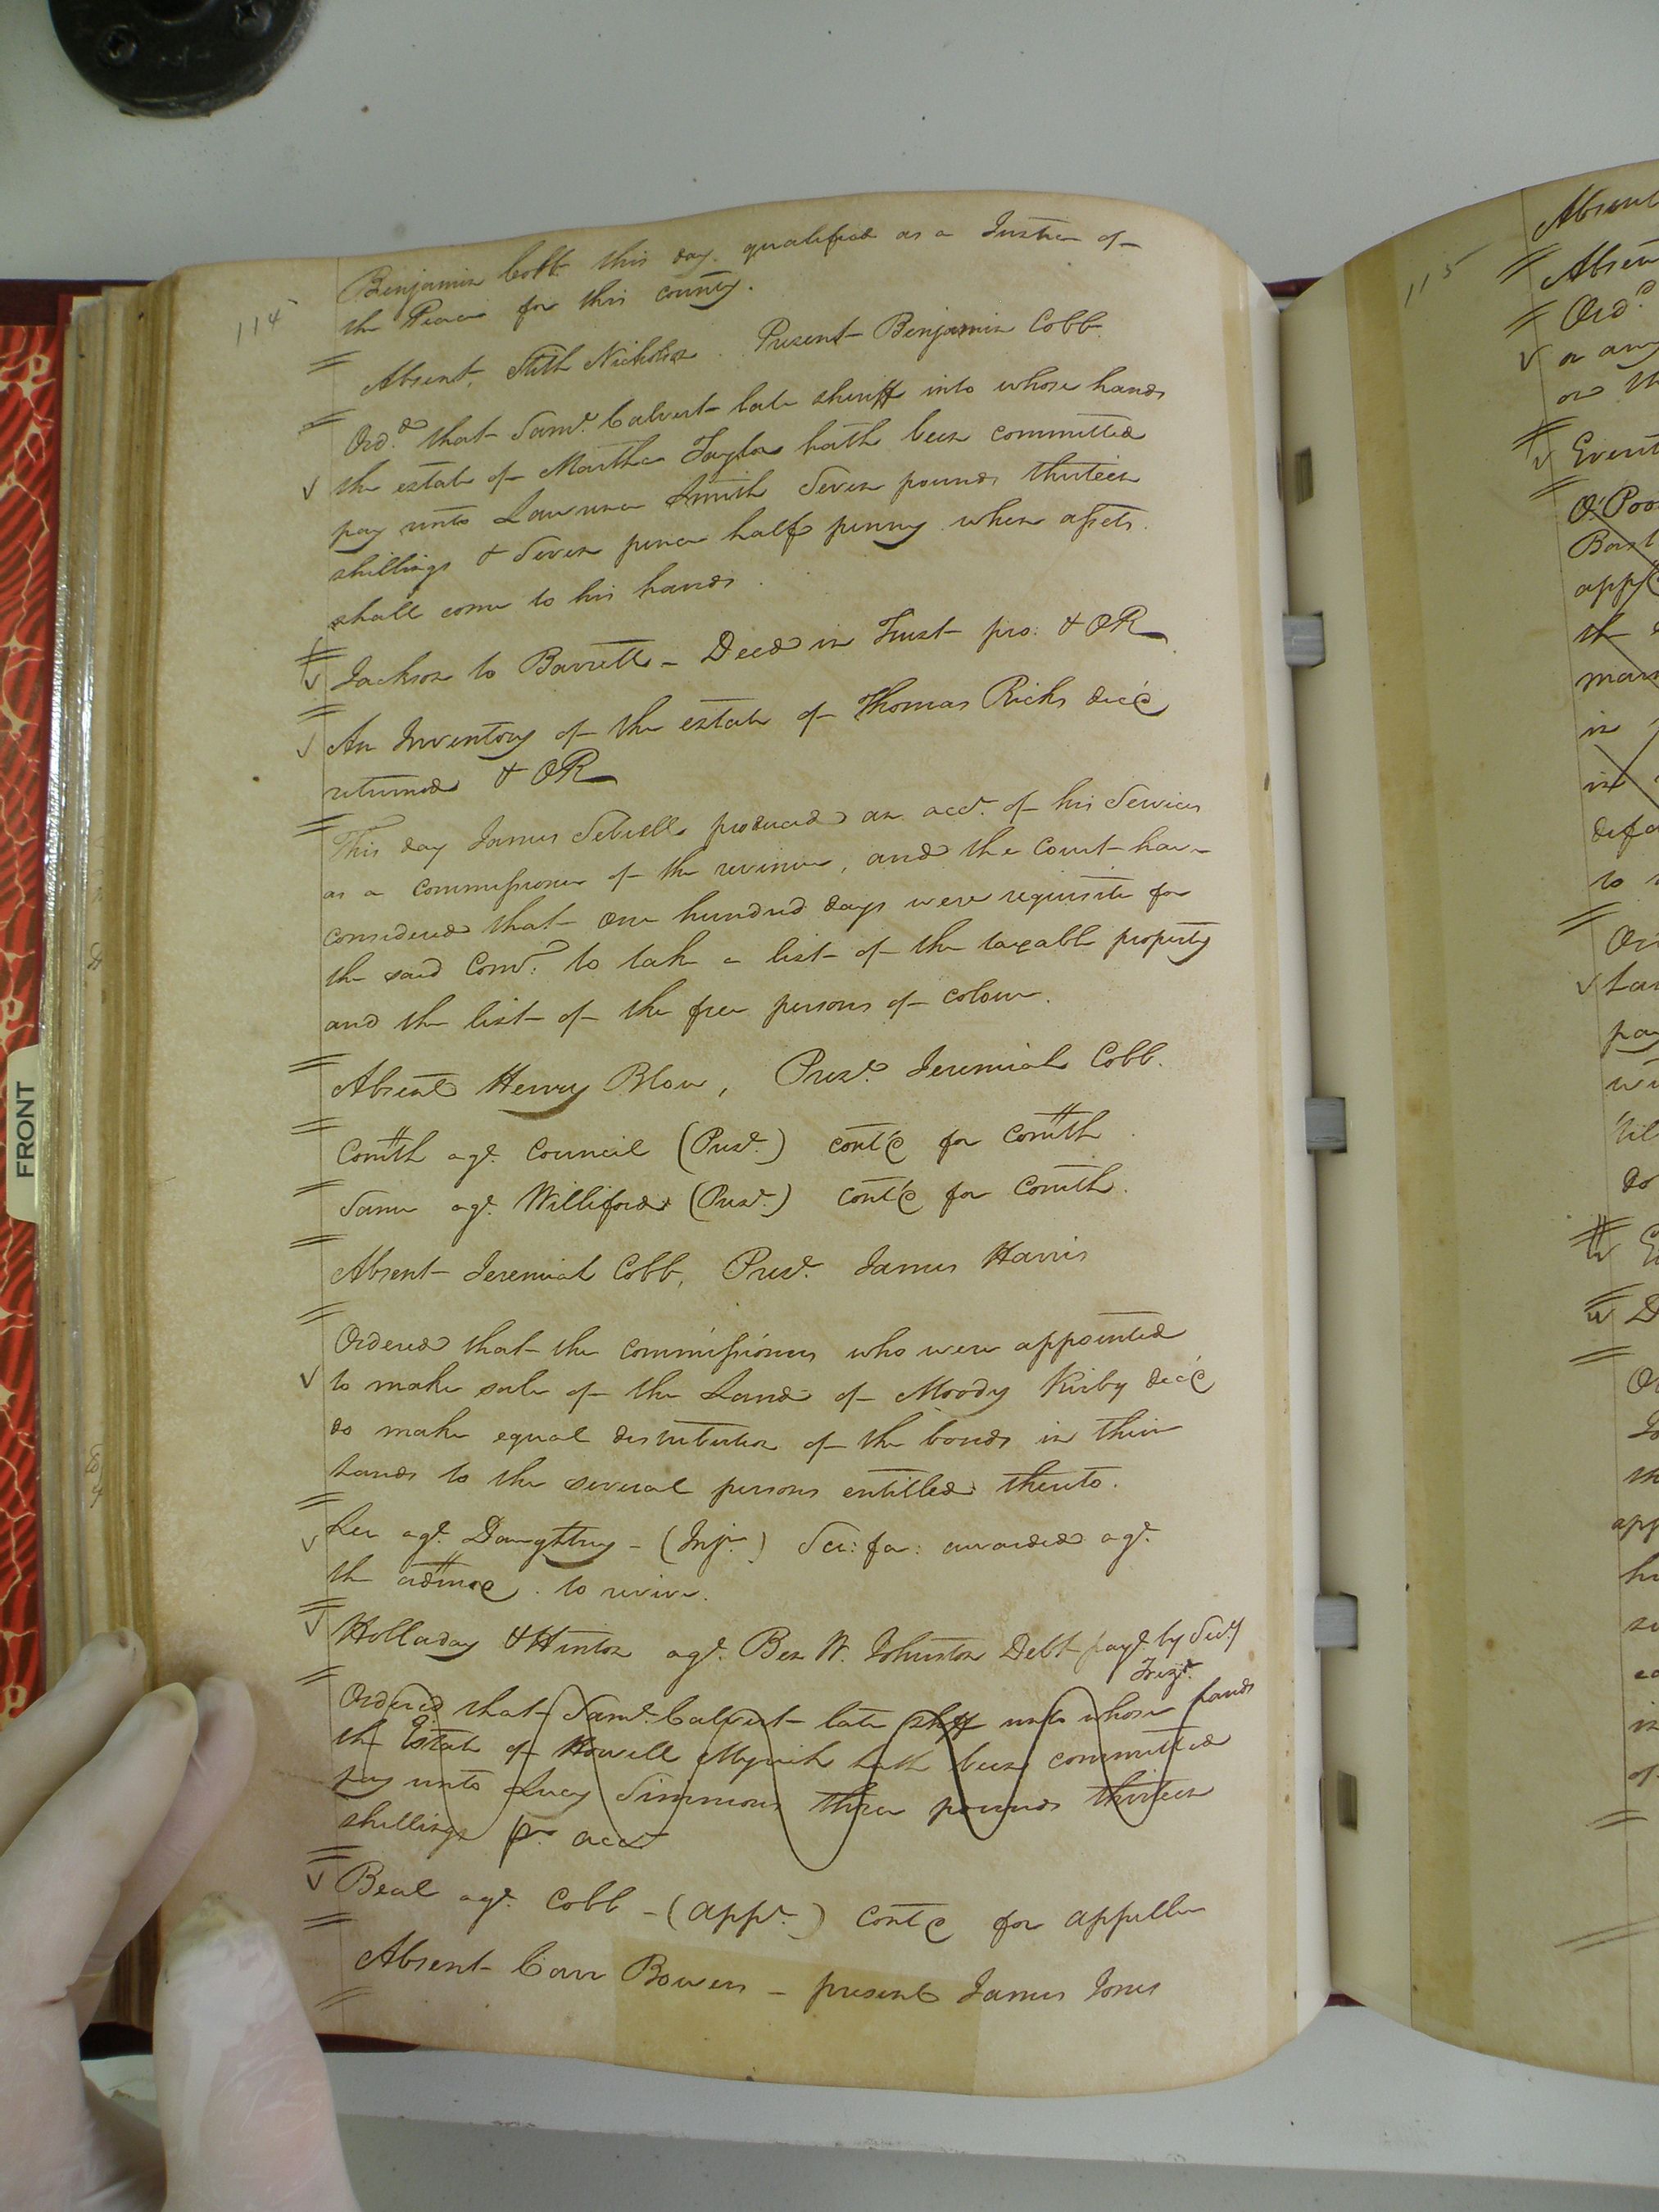 114
Benjamin Cobb this day qualified as a Justice of
the Peace for this county.
Absent, Stith Nicholson. Present Benjamin Cobb
Ord.d that Saml. Calvert late sheriff into whose hands
the estate of Martha Taylor hath been committed
pay unto Lawrence Smith Seven pounds thirteen
shillings & Seven pence half penny when assets
shall come to his hands.
Jackson to Barrett - Deed in Trust pro: & OR
An Inventory of the estate of Thomas Ricks dec'd
returned & OR
This day James Sebrell produced an acct. of his Services
as a commissioner of the revenue, and the Court have
considered that one hundred days were requisite for
the said Comr. to take a list of the taxable property
and the list of the free persons of colour.
Absent Henry Blow, Prest. Jeremiah Cobb.
Comth agt. Council (Prest.) cont'd for Comth.
Same agt. Williford (Prest.) cont'd for Comth.
Absent Jeremiah Cobb, Prest. James Harris
Ordered that the commissioners who were appointed
to make sale of the Land of Moody Kirby dec'd
do make equal distribution of the bonds in their
hands to the several persons entitled thereto.
Lee agt. Daughtrey - (Inj.) Sci: fa: awarded agt.
the to revive.
Holladay & Hinton agt. Ben W. Johnston Debt by
Ordered that Saml. Calvert late shff unto whose hands
the Estate of Howell Myrick hath been committed
pay unto Lucy Simmons three pounds thirteen
shillings pr. acct
Beal agt. Cobb - (appt.) contd for appellee
Absent Carr Bowers - present James Jones
FRONT
115
Absent
Absen
Ord.d
or any
Event
Bost
in
to
pay
do